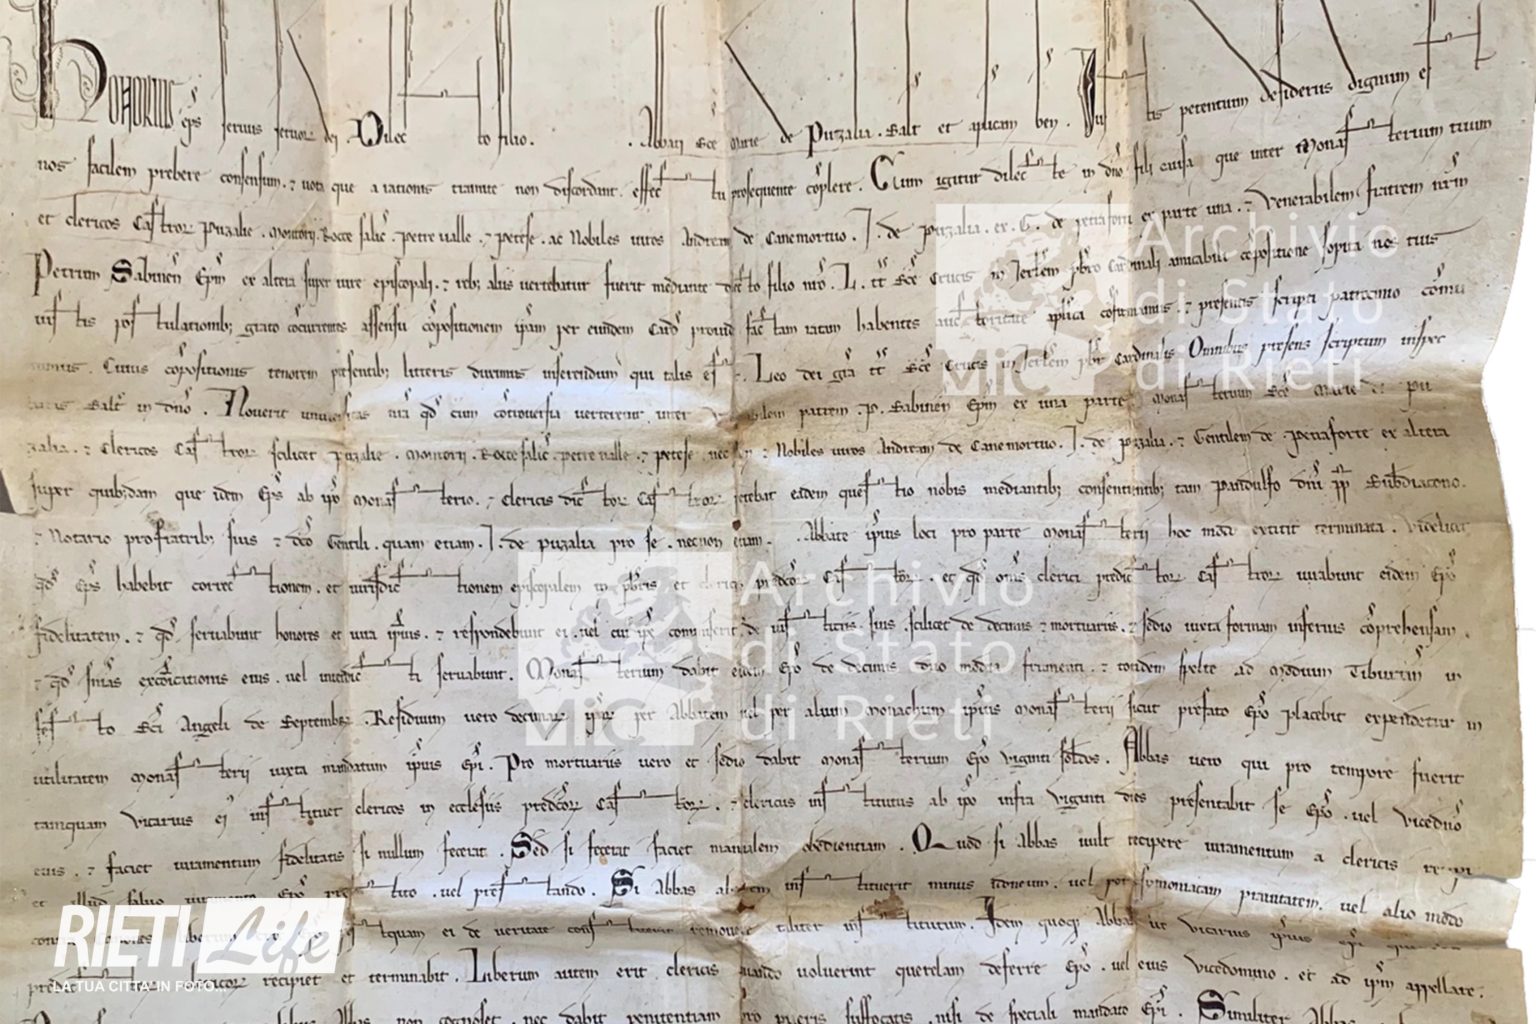 HONORIUS ep̄s servus servor dei. Dilecto filio. . Abbati Sc̄e Marie de Puzalia. Salt̄ et aplicam ben. Iustis petentium desideriis dignum ē
nos facilem prebere consensum. ⁊ vota que a rationis tramite non discordant. effectu prosequente cōplere. Cum igitur dilecte in dn̄o fili causa que inter Monasterium tuum
et clericos Castror Puzalie. Montorii. Rocce salic̄. Petre valle. ⁊ Petese. ac Nobiles viros Andream de Canemortuo. J. de Puzalia. ex. G. de petraforti ex parte una. ⁊ Venerabilem fratrem nr̄m
Petrum Sabinen̄ Ep̄m ex altera super iure episcopali. ⁊ reb; aliis vertebatur fuerit mediante dilc̄to filio nr̄o. L. tt̄ Sc̄e Crucis in Jerl̄em pb̄ro Cardinali amicabili cōpositione sopita nos tuis
iustis postulationib; grato cōcurrentes assensu cōpositionem ip̄am per eundem Card̄ provid̄ factam ratam habentes auctoritate aplica cōfirmamus. ⁊ presentis scripti patrocinio cōmu
nimus. Cuius cōpositionis tenorem presentib; litteris duximus inserendum qui talis est. Leo dei grā tt̄ Sc̄e Crucis in Jerl̄em pb̄r Cardinalis Omnibus presens scriptum inspec
turis Salt̄ in dn̄o. Noverit universitas vr̄a qd̄ cum cōtroversia verteretur inter venerabilem patrem. P. Sabinen̄ Ep̄m ex una parte Monasterium Sc̄e Marie de Pu
zalia. ⁊ Clericos Castror scilicet Puzalie. Montorii. Rocce salic̄. petre valle. ⁊ petese nec non ⁊ Nobiles viros Andream de Canemortuo. J. de puzalia. ⁊ Gentilem de petraforte ex altera
super quibusdam que idem Ep̄s ab ip̄o Monasterio. ⁊ clericis dictor Castror petebat eadem questio nobis mediantib; consentientib; tam Pandulfo dn̄i pp̄ Subdiacono.
⁊ Notario pro fratrib; suis ⁊ dc̄o Gentili. quam etiam. J. de Puzalia pro se. necnon etiam. . Abbate ip̄ius loci pro parte Monasterii hoc modo extitit terminata. Videlicet
qd̄ Ep̄s habebit correctionem. et iurisdictionem episcopalem in pb̄ris et clericis predc̄or Castror. et qd̄ om̄s clerici predictor Castror iurabunt eidem Ep̄o
fidelitatem. ⁊ qd̄ servabunt honores et iura ip̄ius. ⁊ respondebunt ei. vel cui ip̄e commiserit de iustitiis suis. scilicet de decimis ⁊ mortuariis. ⁊ sedio iuxta formam inferius cōprehensam.
⁊ qd̄ snīas excōicationis eius. vel interdicti servabunt. Monasterium dabit eidem Ep̄o de decimis duo modia frumenti. ⁊ totidem spelte ad Modium Tiburtin̄ in
festo Sc̄i Angeli de Septembr. Residuum vero decimar ip̄ar per Abbatem vel per alium Monachum ip̄ius Monasterii sicut prefato Ep̄o placebit expendetur in
utilitatem Monasterii iuxta mandatum ip̄ius Ep̄i. Pro mortuariis vero et sedio dabit Monasterium Ep̄o viginti solidos. Abbas vero qui pro tempore fuerit
tamquam vicarius ei instituet clericos in ecclesiis predc̄or Castror. ⁊ clericus institutus ab ip̄o infra viginti dies presentabit se Ep̄o. vel vicedn̄o
eius. ⁊ faciet iuramentum fidelitatis si nullum fecerat. Sed si fecerat faciet manualem obedientiam. Quod si Abbas vult recipere iuramentum a clericis recipi
et illud salvo iuramento Ep̄o vel prestando. Si Abbas aliquem instituerit minus idoneum. vel per symoniacam pravitatem. vel alio modo
liberum Ep̄o ei de veritate removere taliter institutum. Idem quoq; Abbas ut vicarius ip̄ius
recipiet et terminabit. Liberum autem erit clericis quando voluerint querelam deferre Ep̄o. vel eius vicedomino. et ad ip̄m appellare.
Abbas non cognoscet. nec dabit penitentiam pro pueris suffocatis. nisi de speciali mandato Ep̄i. Similiter Abbas
Archivio
di Stato
di Rieti
MiC
Archivio
di Stato
di Rieti
MiC
RIETI Life
LA TUA CITTA' IN FOTO...